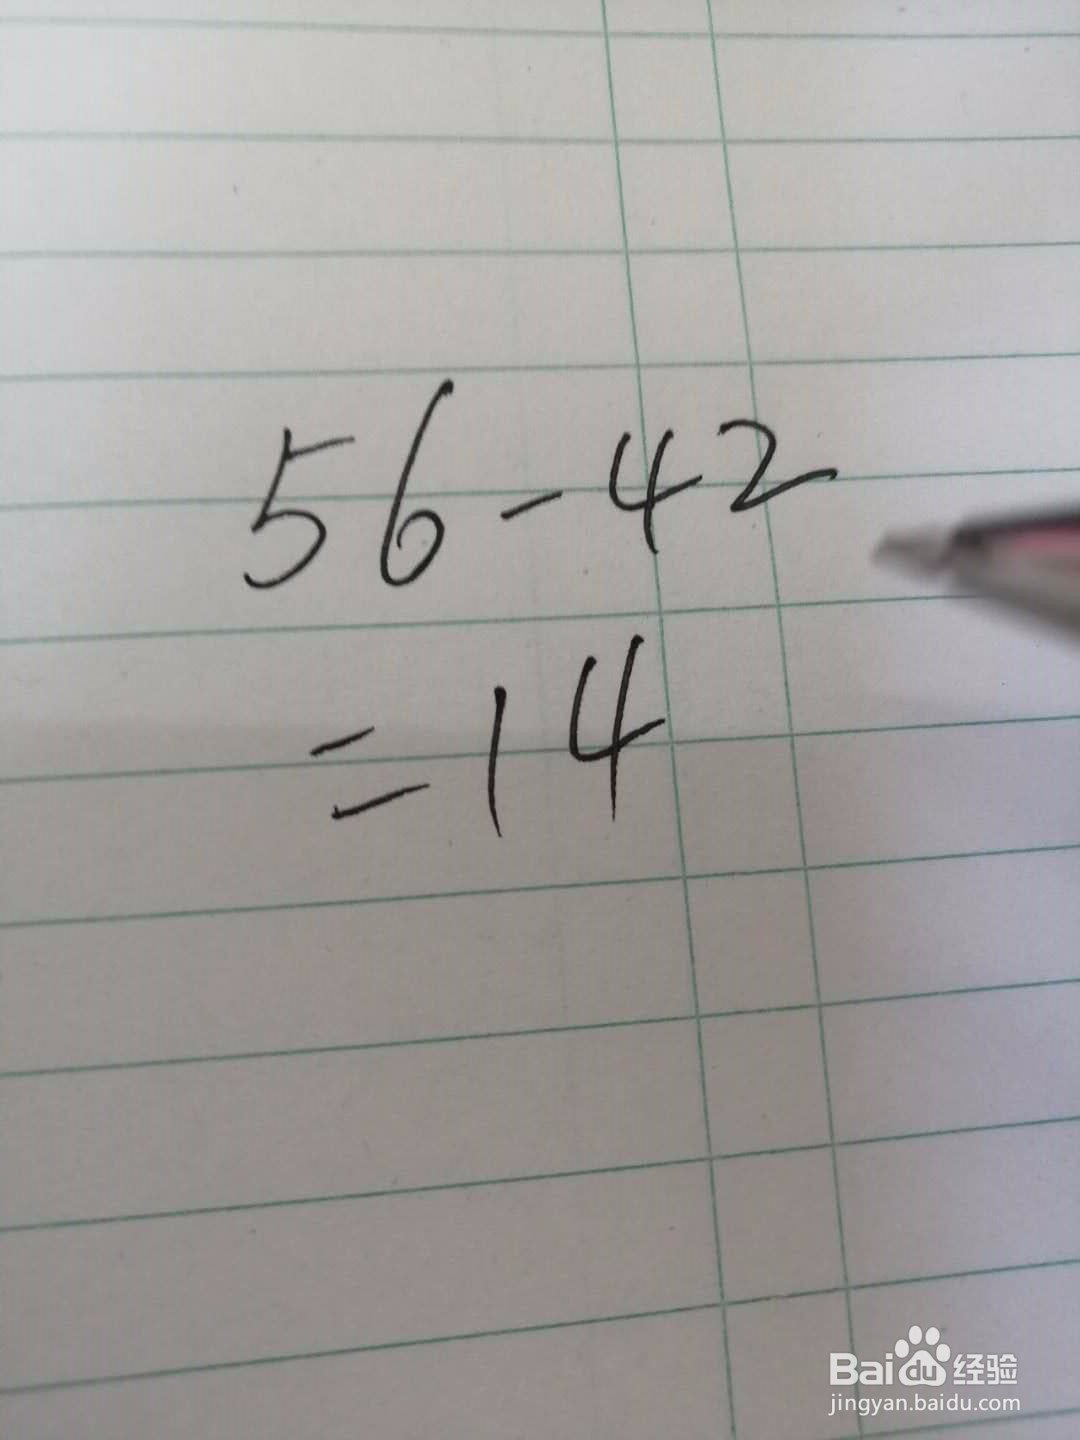 56-42
=14
Baidu经验
jingyan.baidu.com